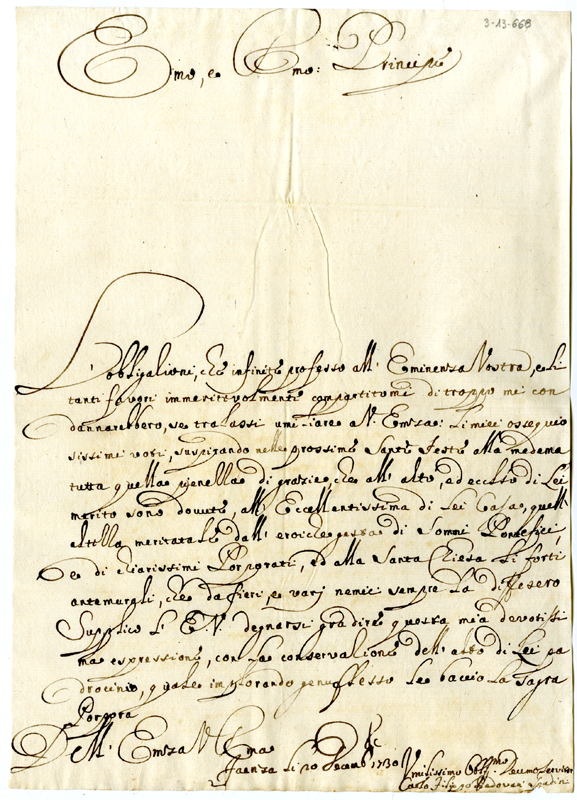 3-13-668
Emo, e Rmo: Principe
L'obbligazioni, che infinite professo all' Eminenza Vostra, e li
tanti favori immeritevolmente compartitomi di troppo mi con
dannarebbero, se tralassi umiliare a V. Emza: li miei ossequio
sissimi voti, suspirando nelle prossime Sante Feste alla medema
tutta quella pienella di grazie, che all' alto, ed eccelso di Lei
merito sono dovute, all' Eccellentissima di Lei Casa, quell'
altella meritatale dall' eroiche gesta di Sommi Pontefici,
e di chiarissimi Porporati, ed alla Santa Chiesa li forti
antemurali, che da fieri, e varj nemici sempre la diffesero
Supplico L' E. V. degnarsi gradire questa mia devotissi
ma espressione, con la conservazione dell' alto di Lei pa
drocinio, quale implorando genuflesso le baccio la sagra
Porpora
Dell' Emza V Rma
Faenza li 20 Decemb 1730
Umilissimo Devmo Servitor
Carlo Filippo